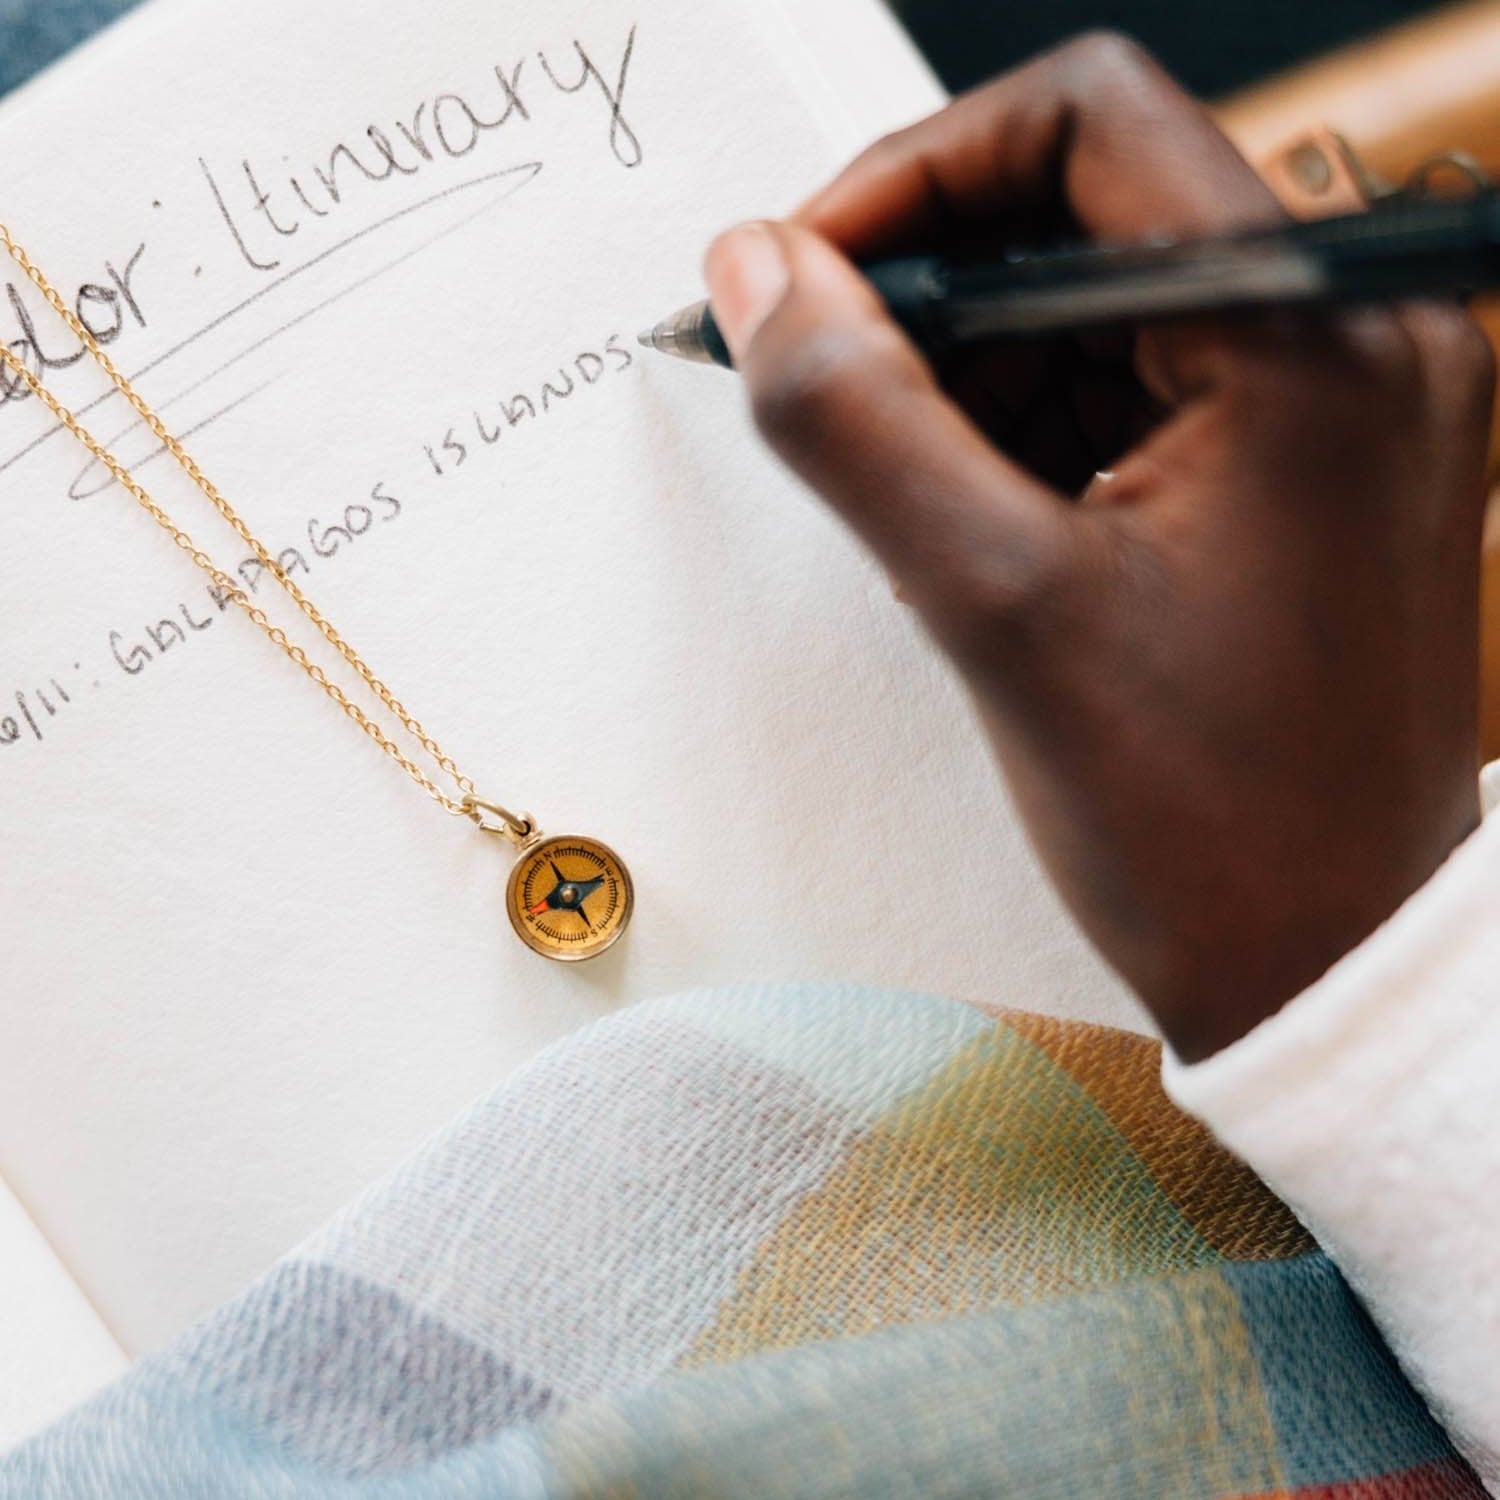 dor: Itinerary
6/11: GALAPAGOS ISLANDS
N
E
S
W